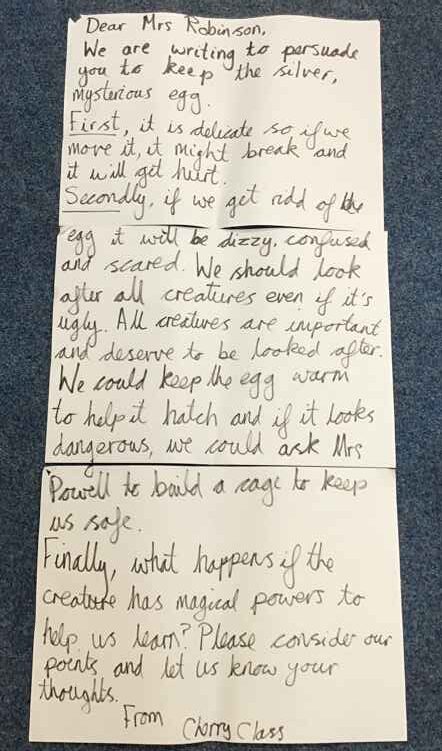 Dear Mrs Robinson,
We are writing to persuade
you to keep the silver,
mysterious egg.
First, it is delicate so if we
move it, it might break and
it will get hurt.
Secondly, if we get ridd of the
egg it will be dizzy, confused
and scared. We should look
after all creatures even if it's
ugly. All creatures are important
and deserve to be looked after.
We could keep the egg warm
to help it hatch and if it looks
dangerous, we could ask Mrs
Powell to build a cage to keep
us safe.
Finally, what happens if the
creature has magical powers to
help us learn? Please consider our
points and let us know your
thoughts.
From Cherry Class